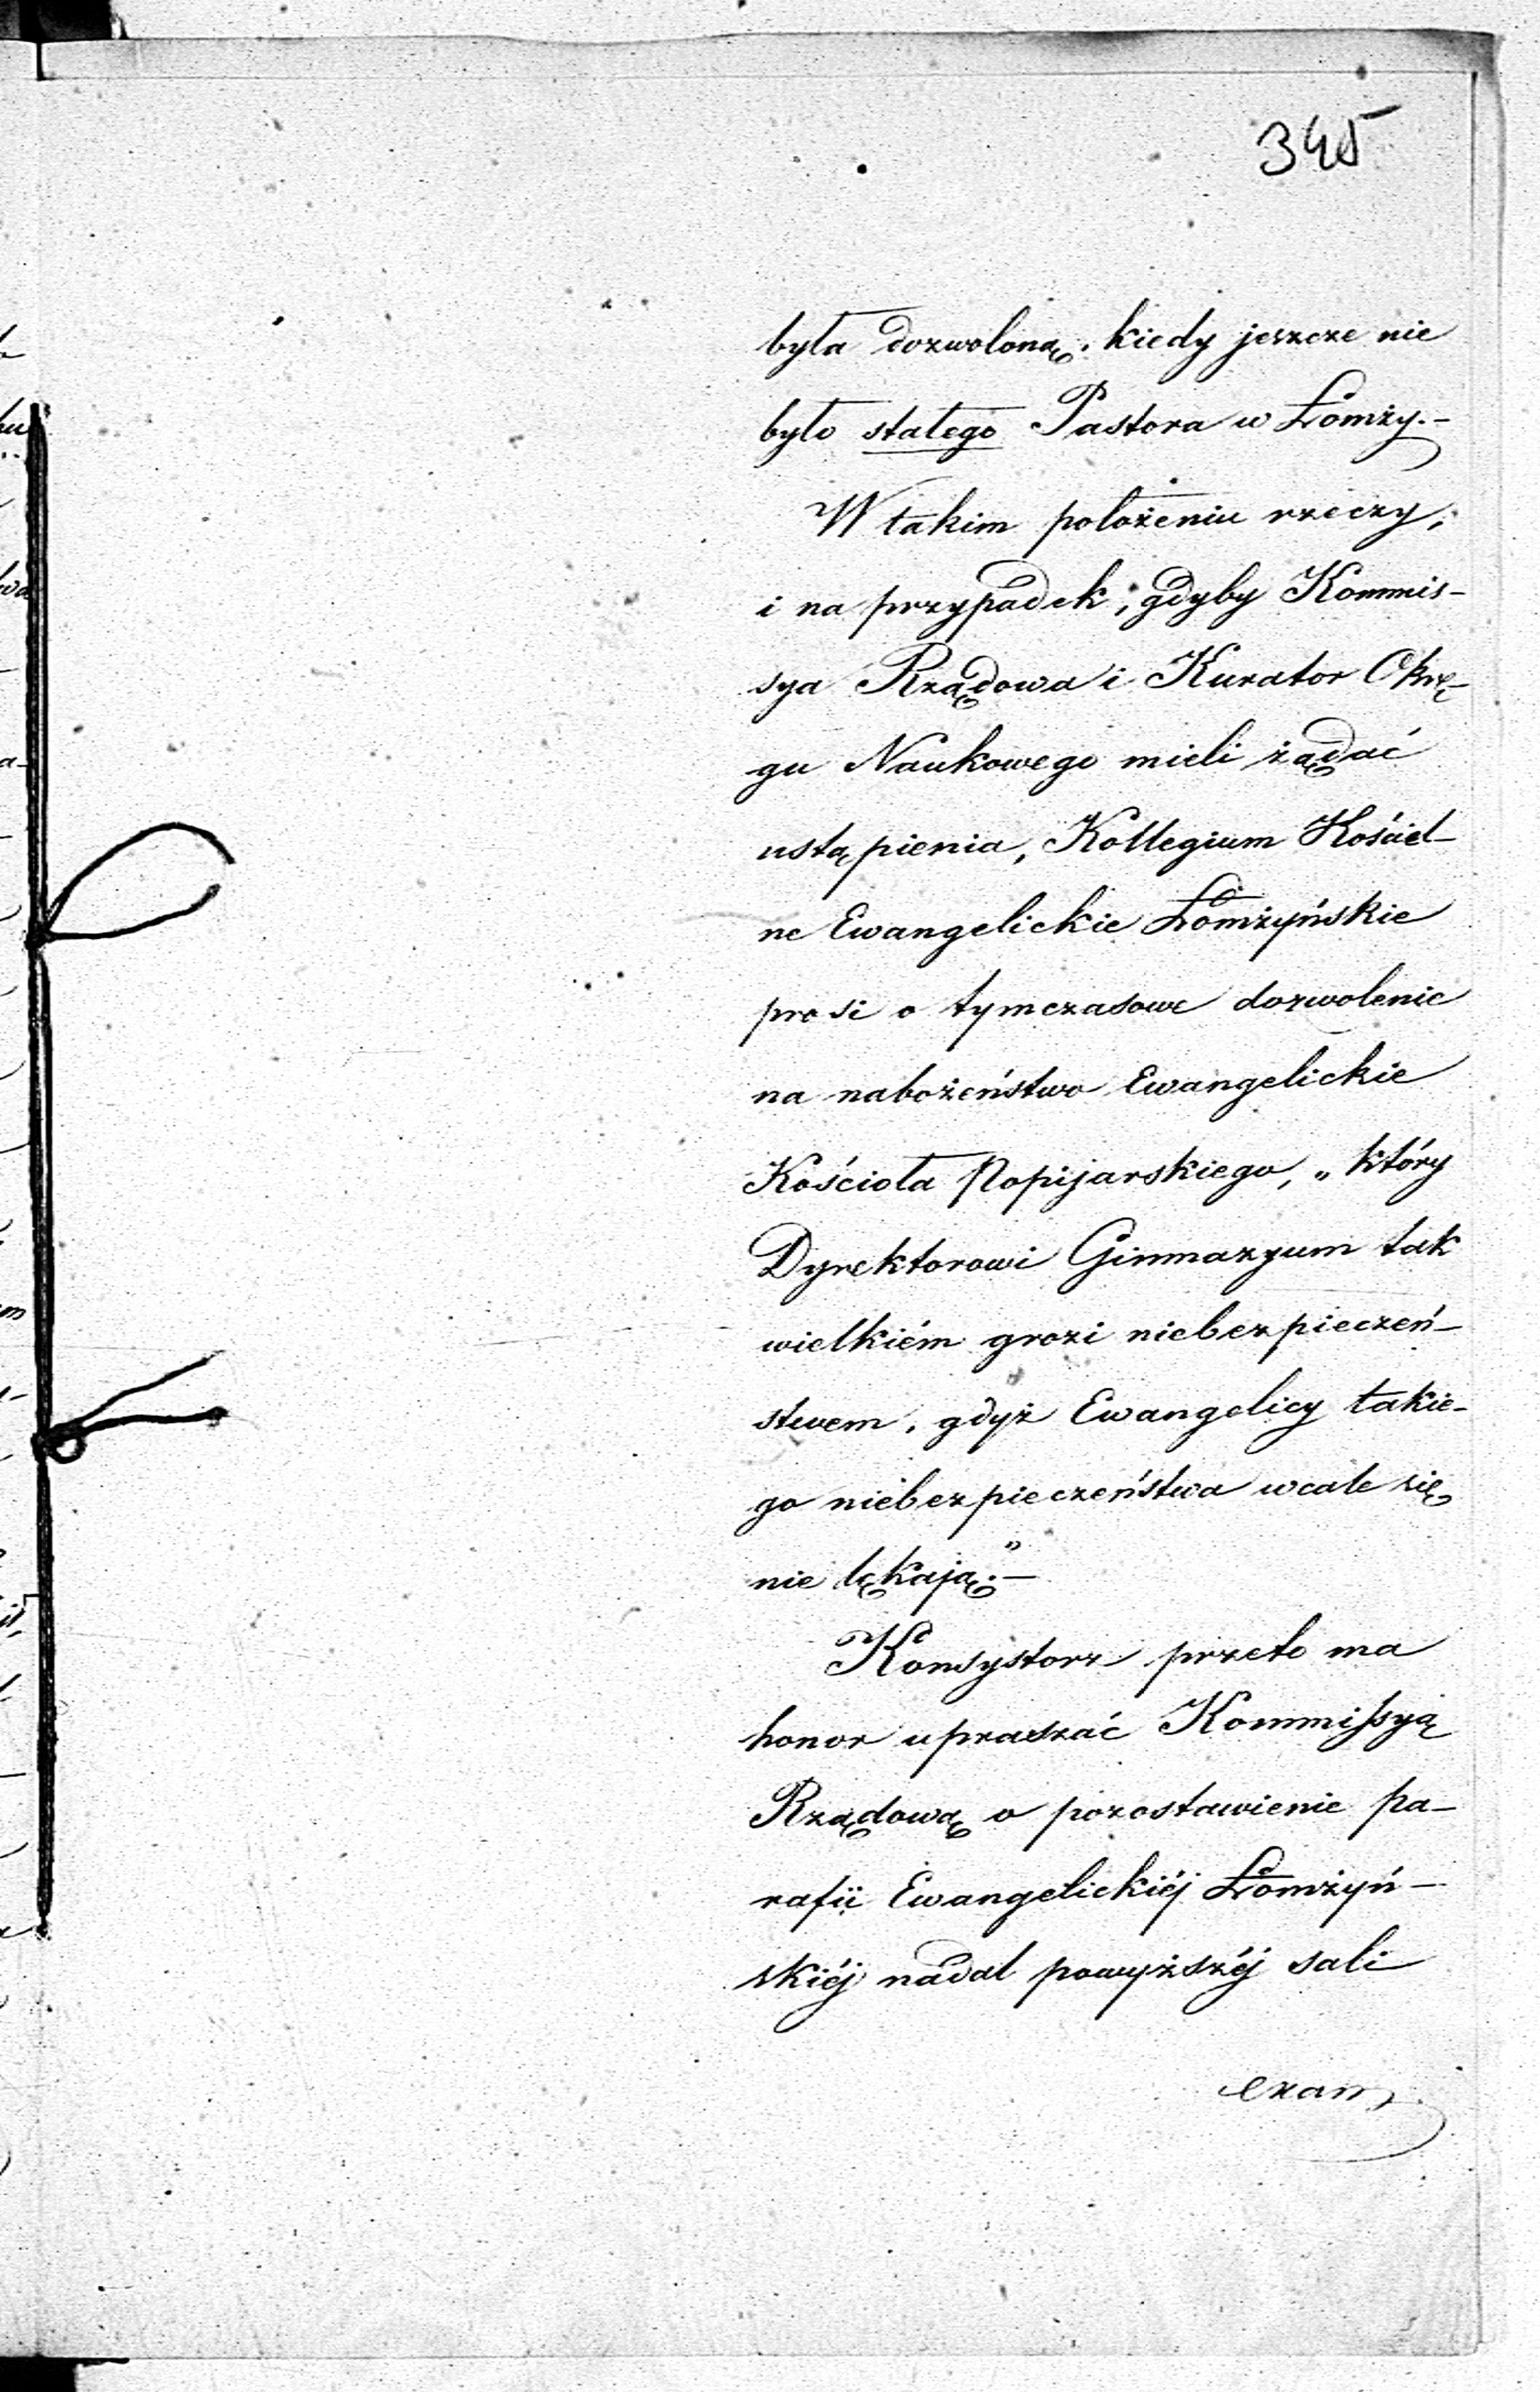 345
była dozwoloną, kiedy jeszcze nie
było stałego Pastora w Łomży.-
W takim położeniu rzeczy,
i na przypadek, gdyby Kommis-
sya Rządowa i Kurator Okrę-
gu Naukowego mieli żądać
ustąpienia, Kollegium Kościel-
ne Ewangelickie Łomżyńskie
prosi o tymczasowe dozwolenie
na nabożeństwo Ewangelickie
Kościoła Popijarskiego, „który
Dyrektorowi Gimnazyum tak
wielkiém grozi niebezpieczeń-
stwem, gdyż Ewangelicy takie-
go niebezpieczeństwa wcale się
nie lękają."-
Konsystorz przeto ma
honor upraszać Kommissyą
Rządową o pozostawienie pa-
rafii Ewangelickiéj Łomżyń-
skiéj nadal powyższéj sali
exam,